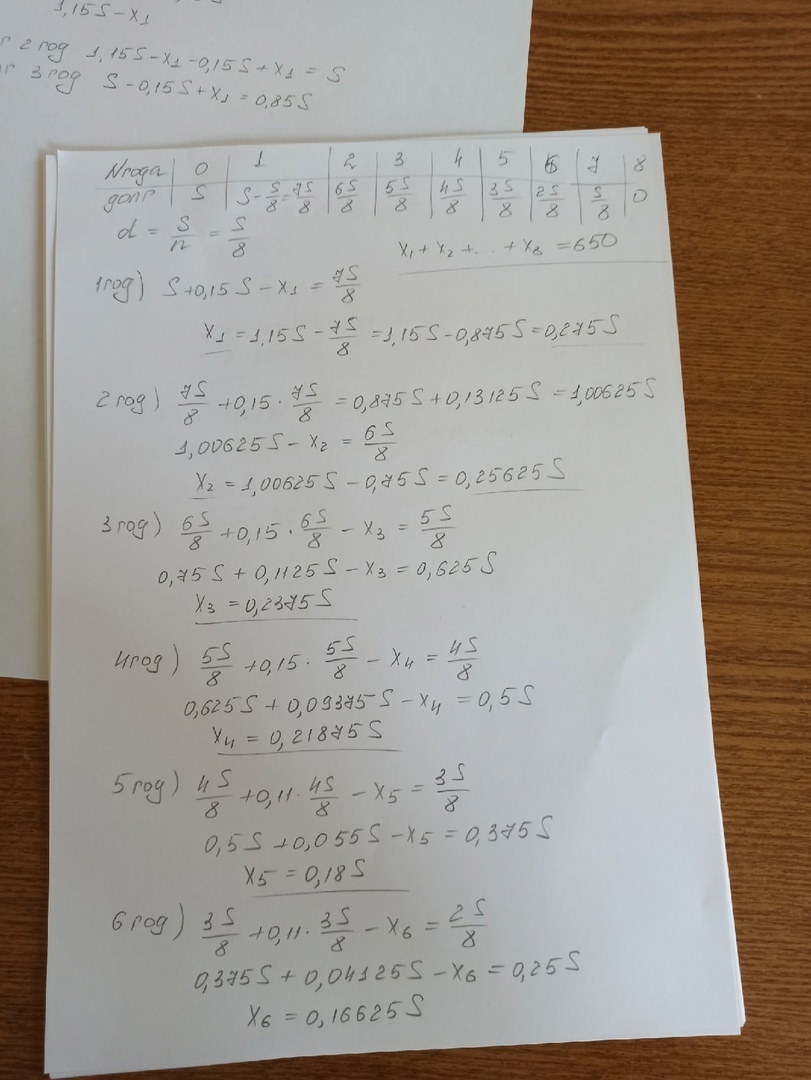 1,15S-x₁
2 год 1,15S-x₁-0,15S+x₁ = S
3 год S-0,15S+x₁=0,85S
N года 0 1 2 3 4 5 6 7 8
долг S S-S/8=7S/8 6S/8 5S/8 4S/8 3S/8 2S/8 S/8 0
d = S/n = S/8
x₁ + x₂ + ... + x₈ = 650
1 год) S+0,15S-x₁ = 7S/8
x₁=1,15S-7S/8=1,15S-0,875S=0,275S
2 год) 7S/8+0,15·7S/8=0,875S+0,13125S=1,00625S
1,00625S-x₂=6S/8
x₂=1,00625S-0,75S=0,25625S
3 год) 6S/8+0,15·6S/8-x₃=5S/8
0,75S+0,1125S-x₃=0,625S
x₃=0,2375S
4 год) 5S/8+0,15·5S/8-x₄=4S/8
0,625S+0,09375S-x₄=0,5S
x₄=0,21875S
5 год) 4S/8+0,11·4S/8-x₅=3S/8
0,5S+0,055S-x₅=0,375S
x₅=0,18S
6 год) 3S/8+0,11·3S/8-x₆=2S/8
0,375S+0,04125S-x₆=0,25S
x₆=0,16625S